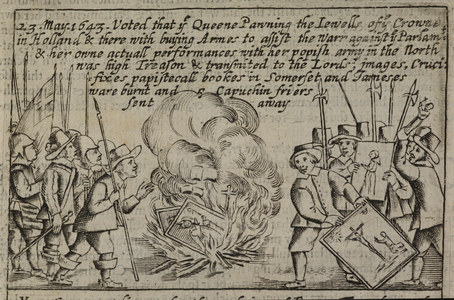 23. May. 1643. Voted that yᵉ Queene Pawning the Iewells of yᵉ Crowne
in Holland & there with buying Armes to assist the Warr against yᵉ Parlam:
& her owne actuall performances with her popish army in the North
was high Treason & transmited to the Lords; images, Cruci:
fixes papisticall bookes in Somerset and Iameses
ware burnt and 5 Capuchin friers
sent away